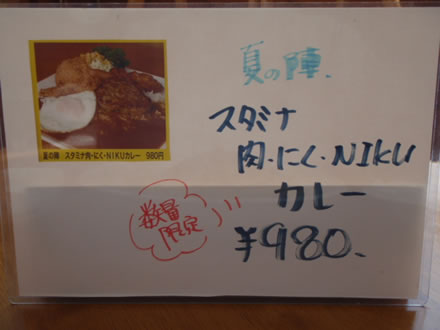 夏の陣 スタミナ肉・にく・NIKUカレー 980円
夏の陣.
スタミナ
肉・にく・NIKU
カレー
¥980.
数量
限定